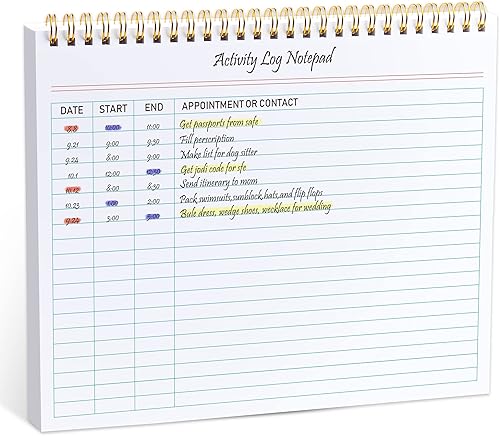 Activity Log Notepad
DATE START END APPOINTMENT OR CONTACT
8.8 10:00 11:00 Get passports from safe
9.21 9:00 9:30 Fill perscription
9.24 8:00 9:00 Make list for dog sitter
10.1 12:00 12:30 Get jodi code for sfe
10.12 8:00 8:30 Send itinerary to mom
10.23 1:00 2:00 Pack swimsuits,sunblock,hats,and flip flops
9.24 5:00 5:00 Bule dress, wedge shoes, wecklace for wedding